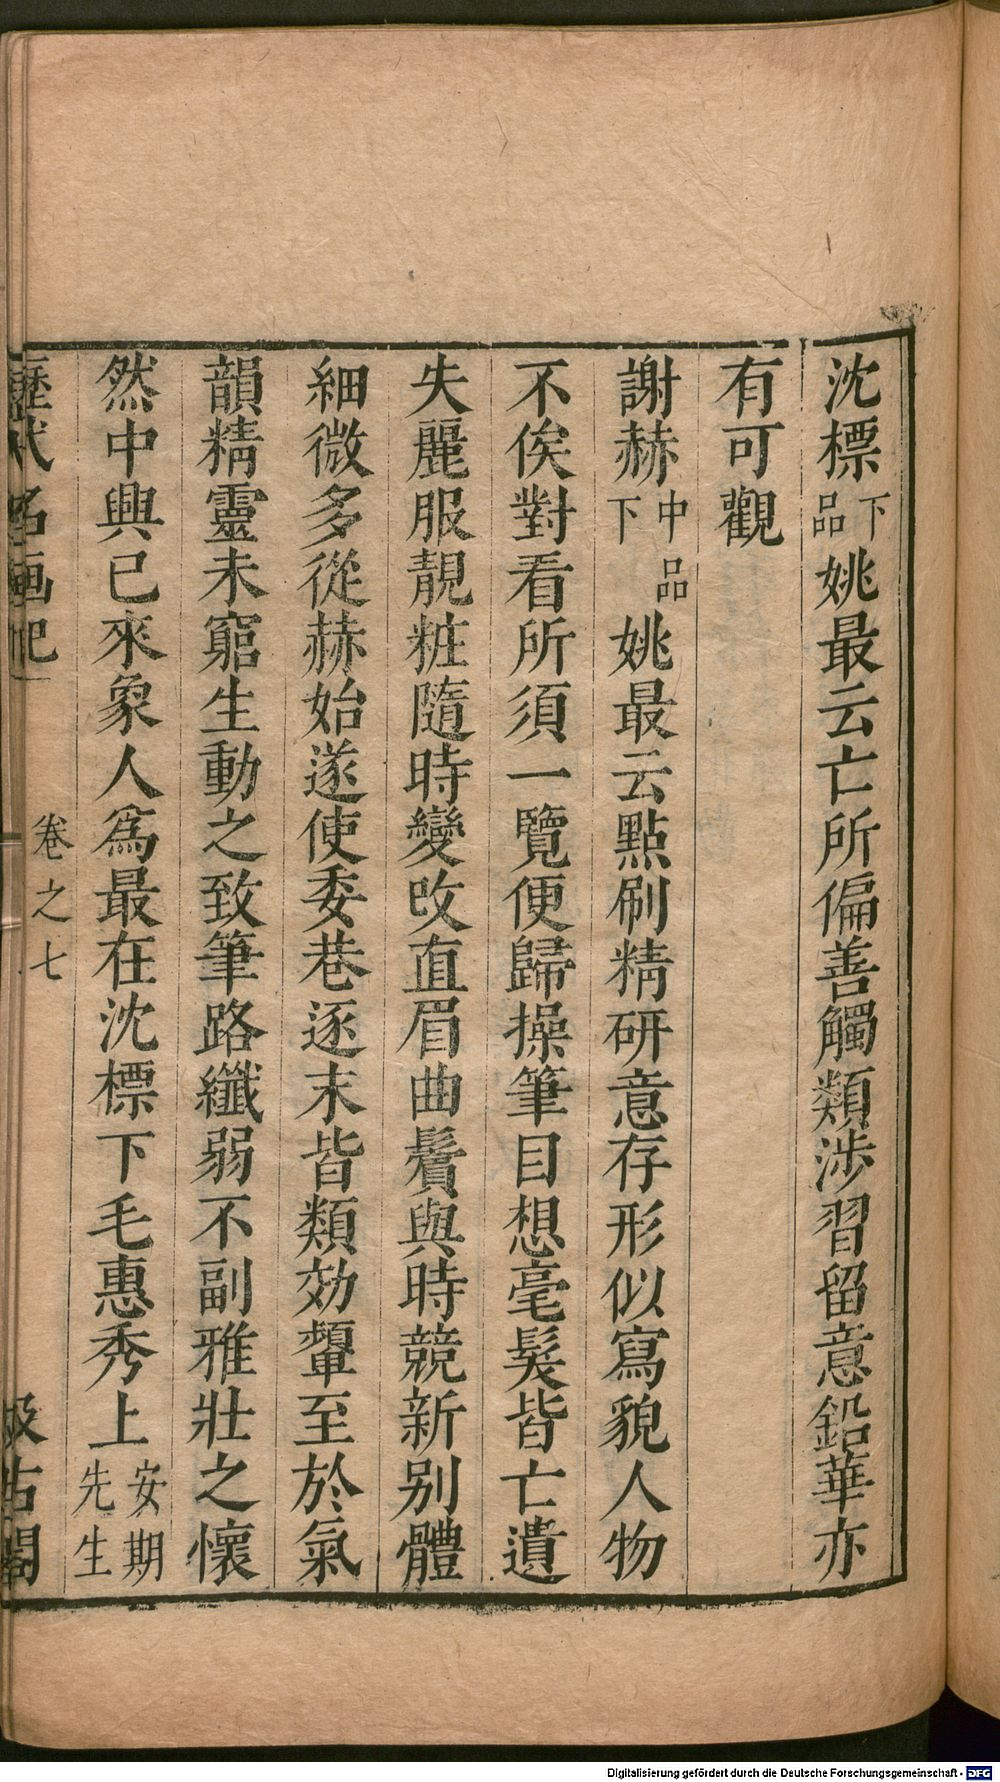 沈標下品姚最云亡所偏善觸類涉習留意鉛華亦
有可觀
謝赫中品下姚最云點刷精研意存形似寫貌人物
不俟對看所須一覽便歸操筆目想毫髮皆亡遺
失麗服靚粧隨時變改直眉曲鬢與時競新别體
細微多從赫始遂使委巷逐末皆類効顰至於氣
韻精靈未窮生動之致筆路纖弱不副雅壯之懷
然中興已來象人爲最在沈標下毛惠秀上安期先生
歷代名画記 卷之七 汲古閣
Digitalisierung gefördert durch die Deutsche Forschungsgemeinschaft - DFG